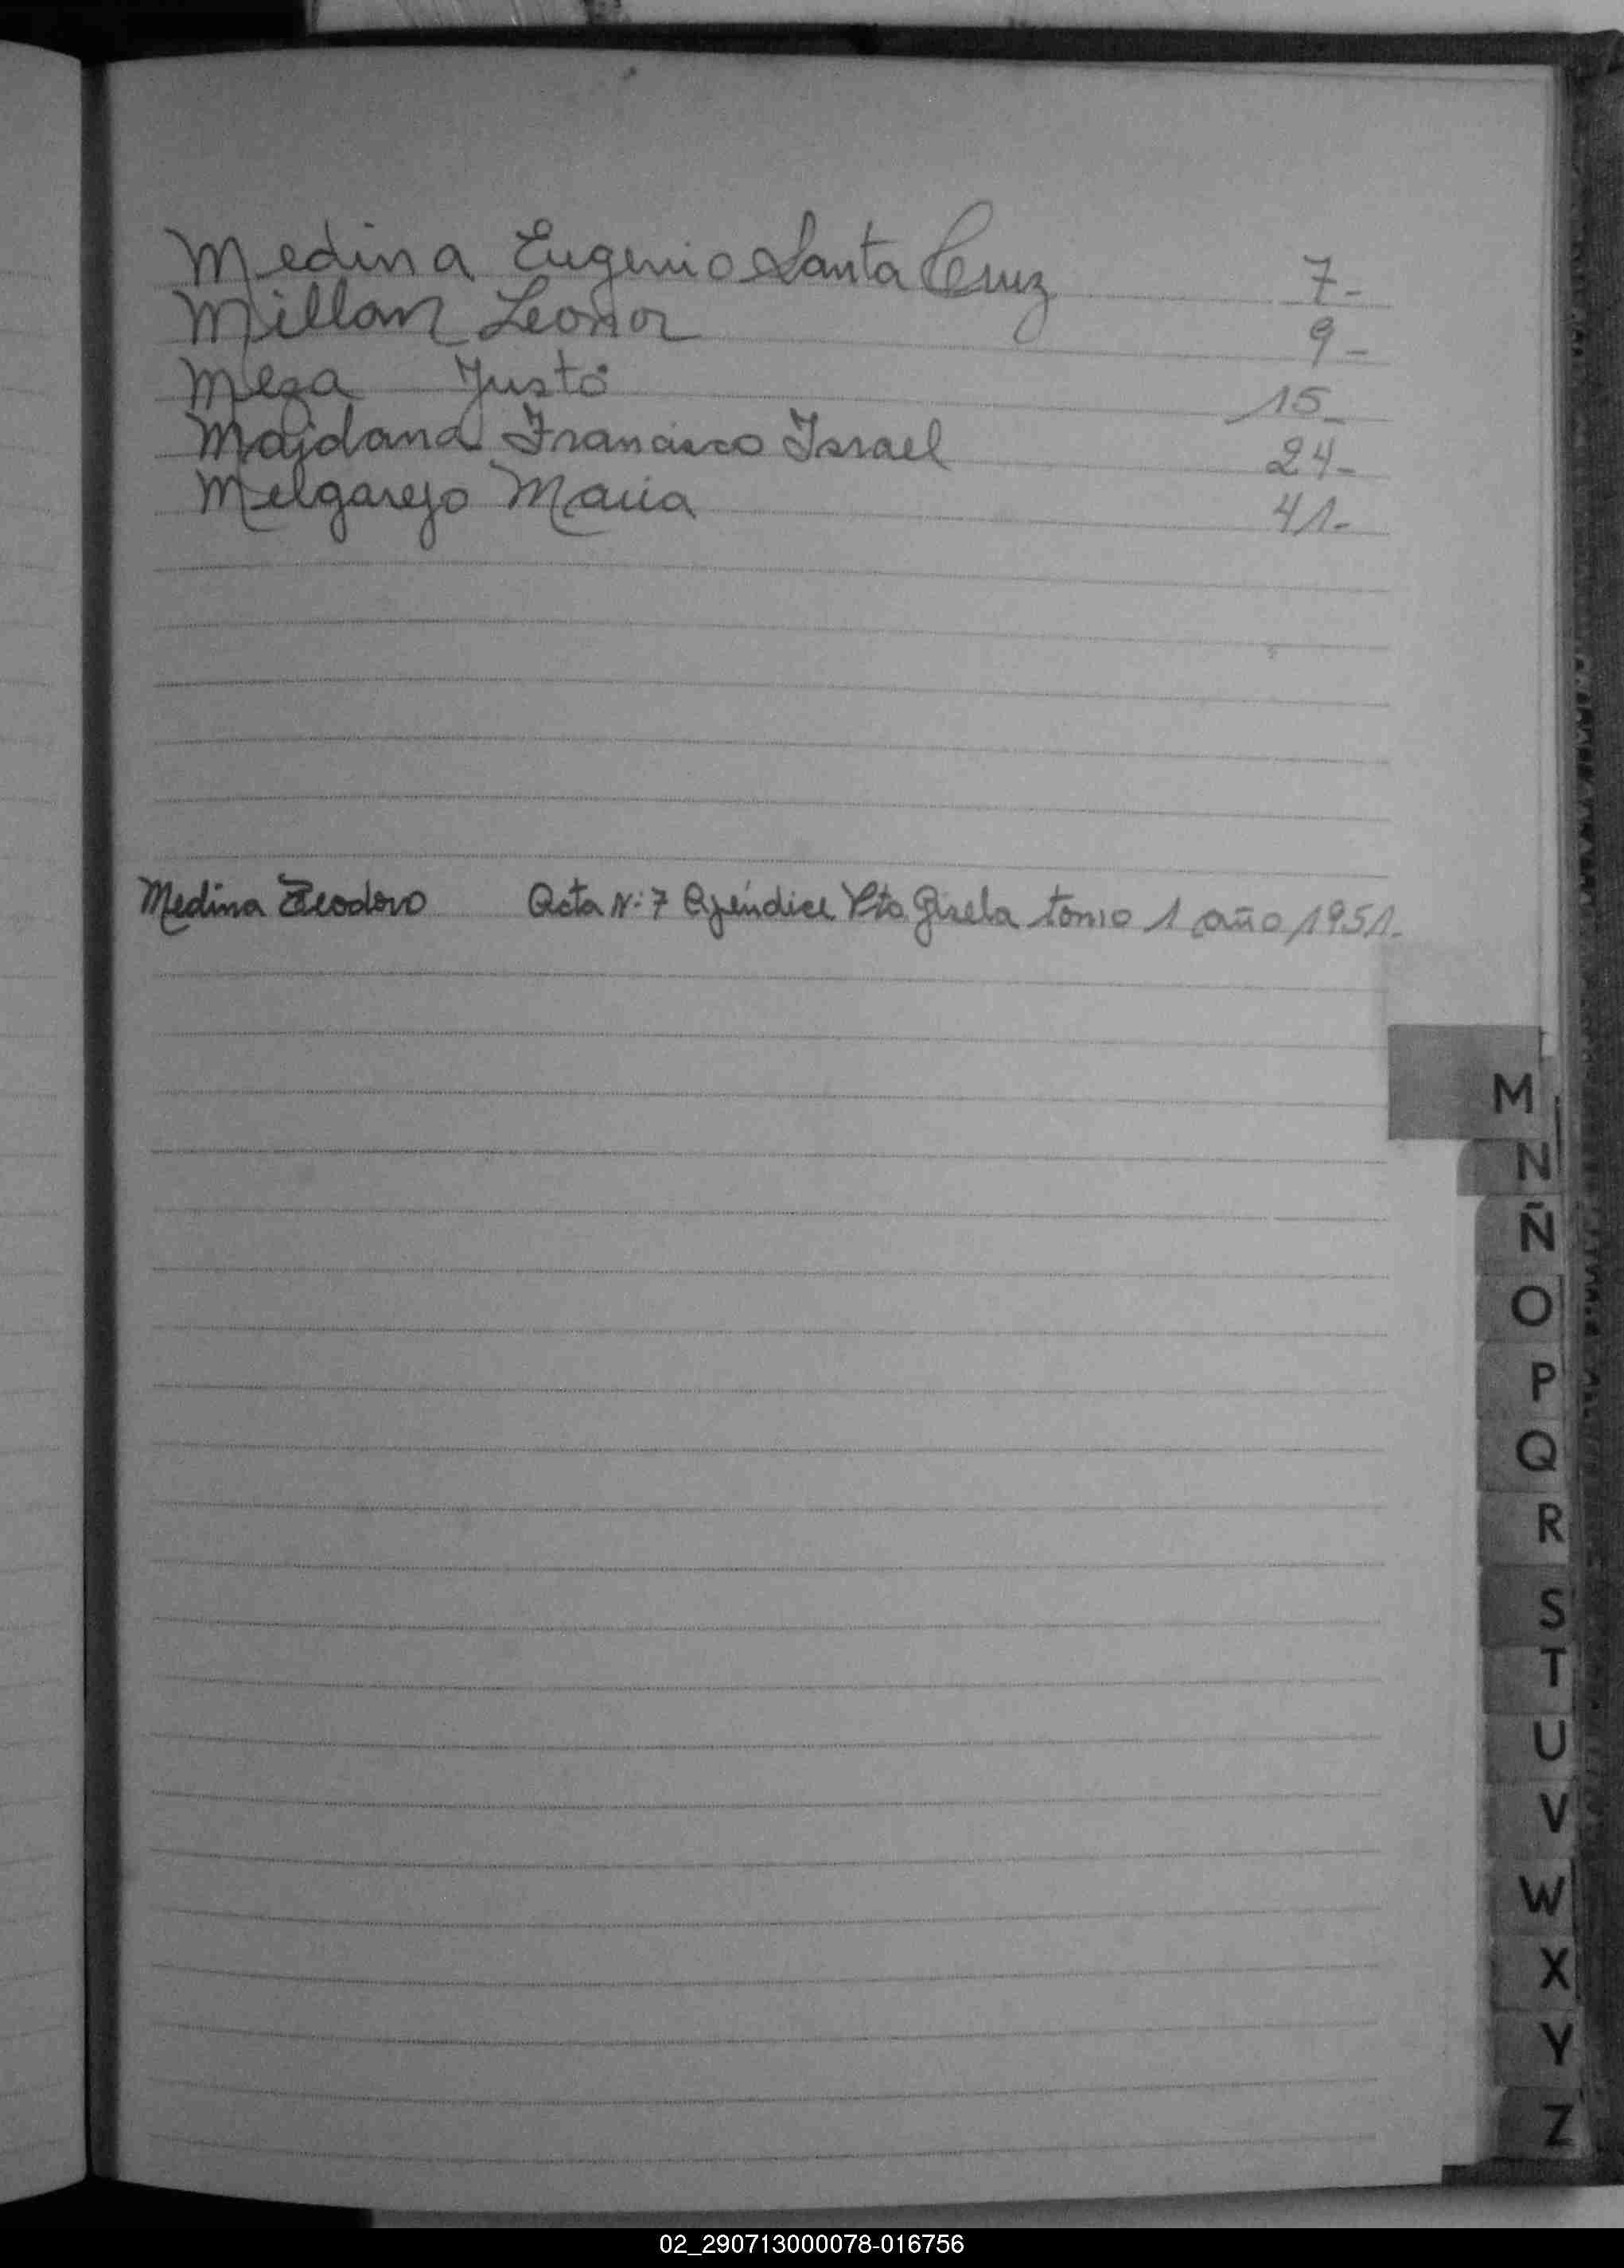 Medina Eugenio Santa Cruz 7-
Millan Leonor 9-
Meza Justo 15-
Maidana Francisco Israel 24-
Melgarejo Maria 41-
Medina Teodoro Acta N: 7 Apéndice Pto Gisela tomo 1 año 1951.-
M
N
Ñ
O
P
Q
R
S
T
U
V
W
X
Y
Z
02_290713000078-016756